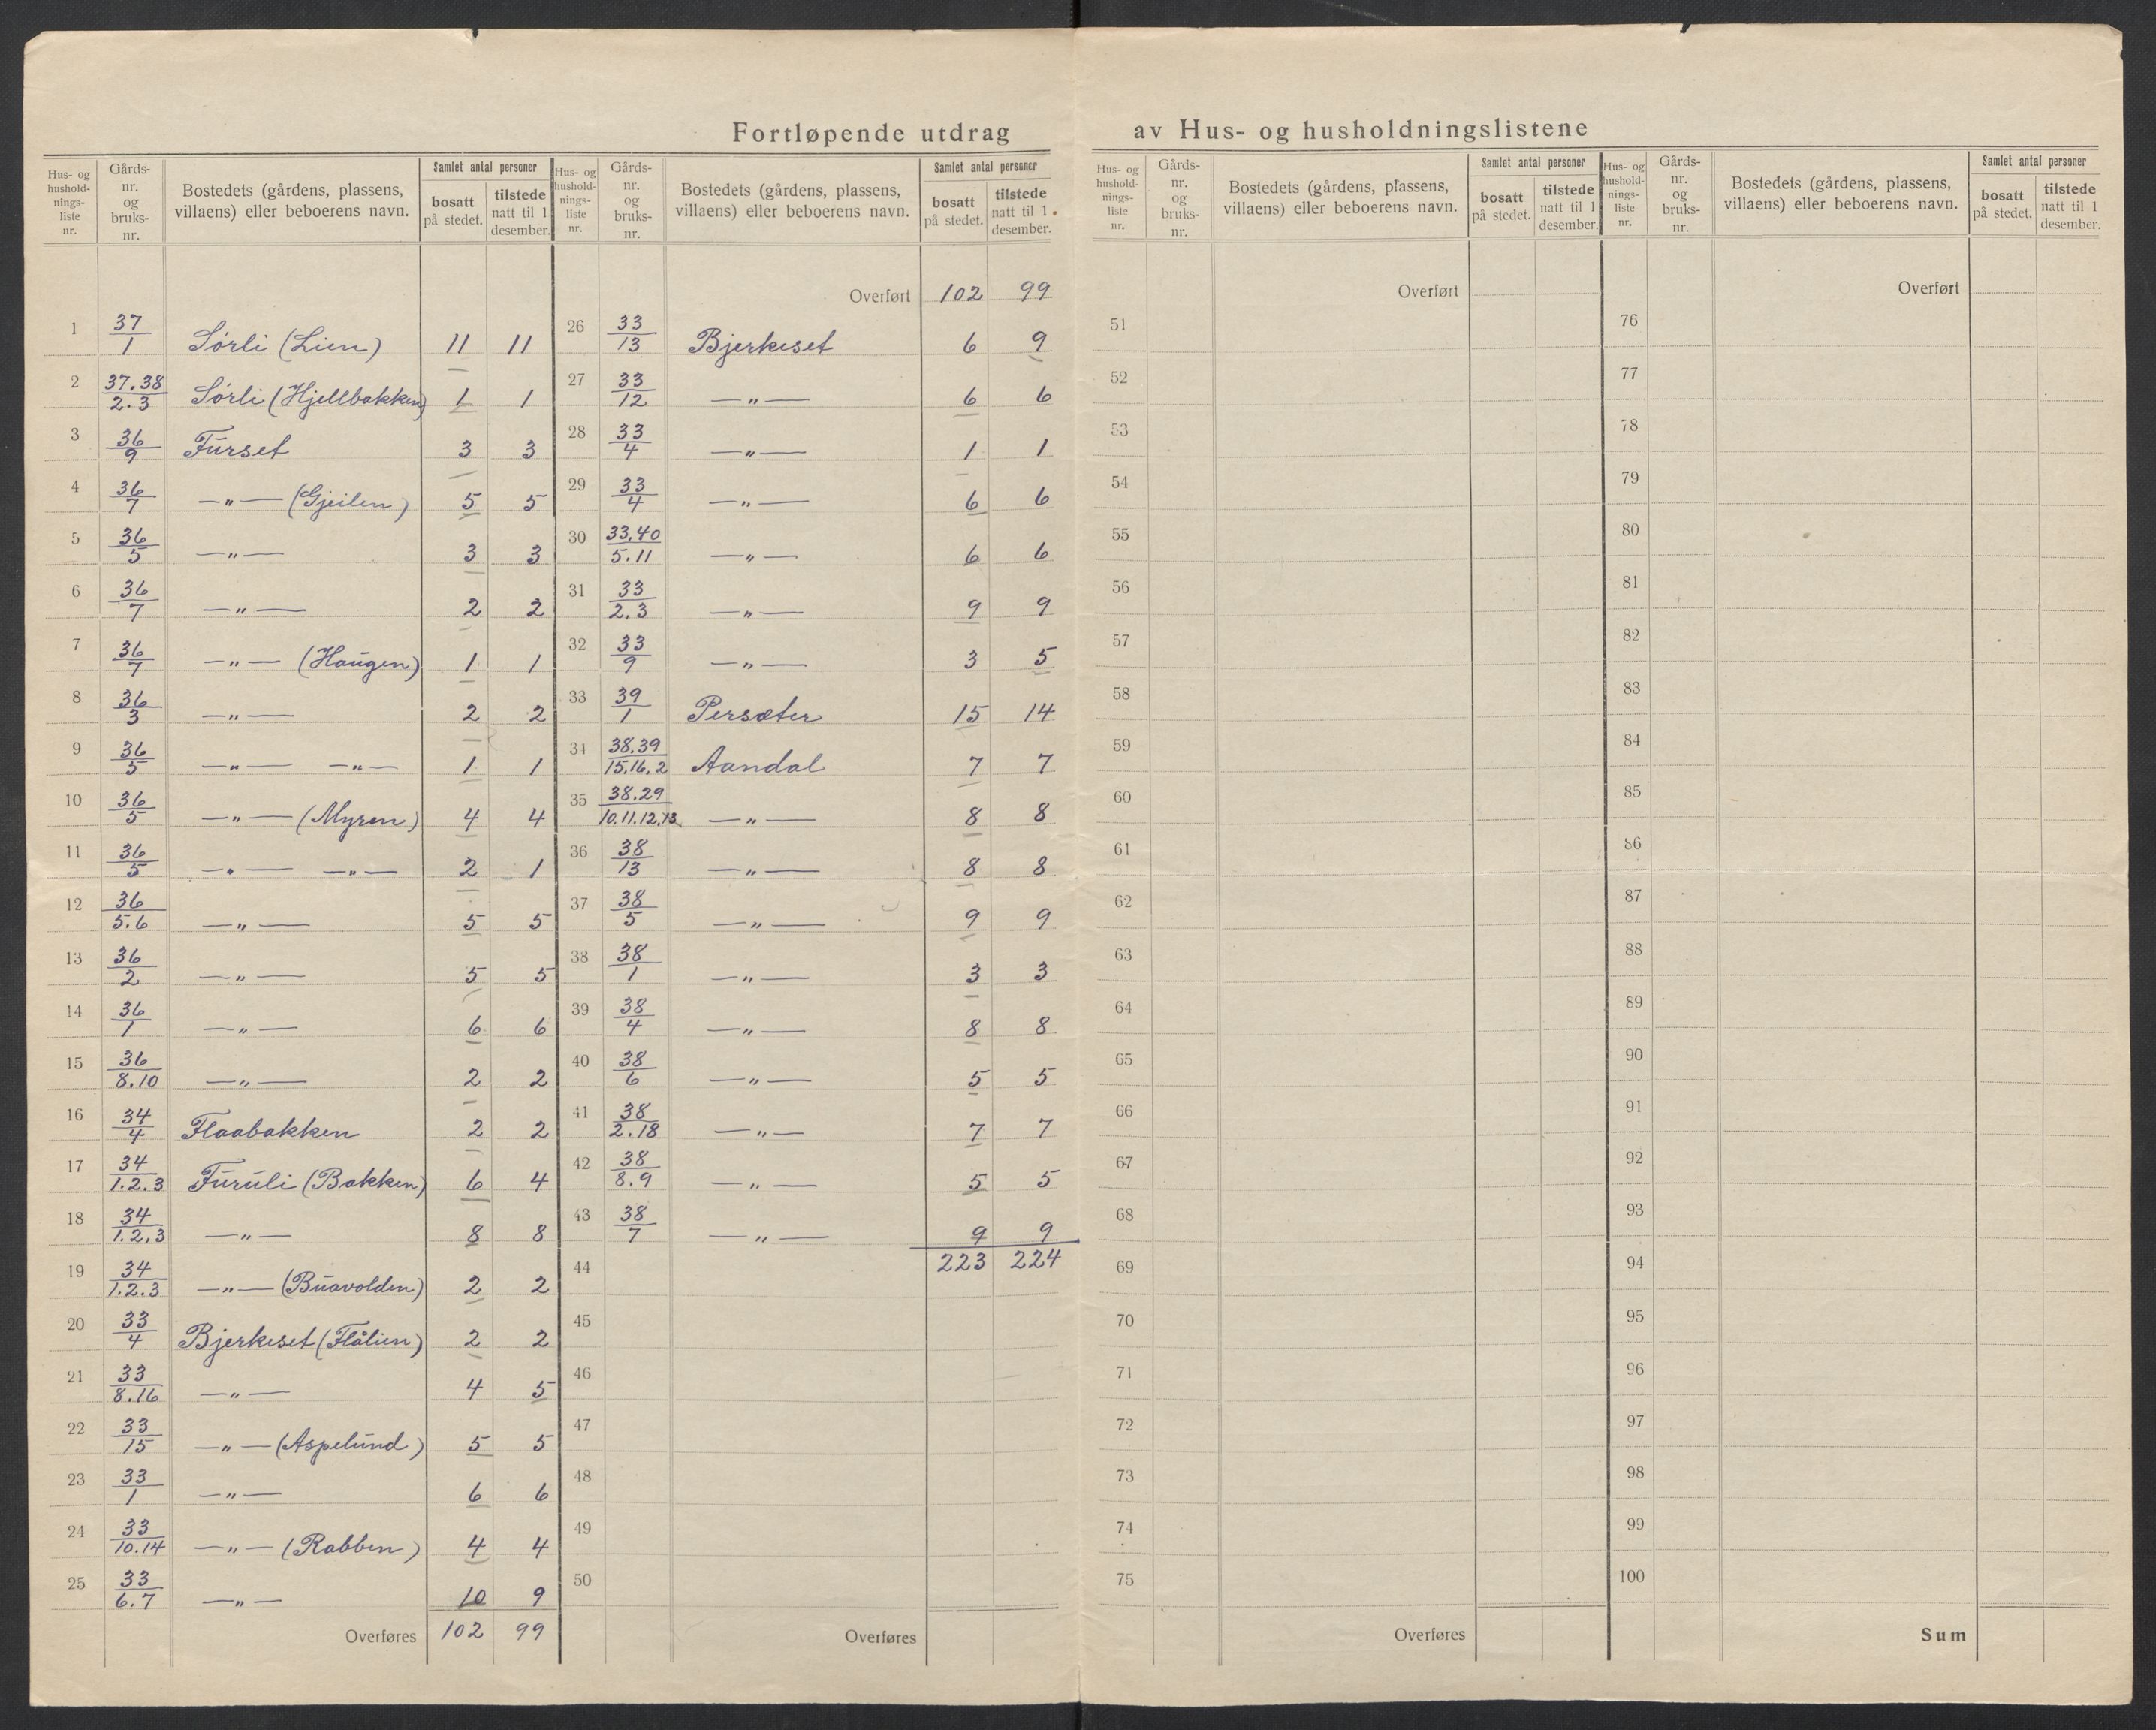 Fortløpende utdrag av Hus- og husholdningslistene
Hus- og hushold-nings-liste nr. | Gårds-nr. og bruks-nr. | Bostedets (gårdens, plassens, villaens) eller beboerens navn. | Samlet antal personer | bosatt på stedet. | tilstede natt til 1 desember.
1 37/1 Sørli (Lien) 11 11
2 37.38/2.3 Sørli (Hjellbakken) 1 1
3 36/9 Furset 3 3
4 36/7 —„— (Gjeilen) 5 5
5 36/5 —„— 3 3
6 36/7 —„— 2 2
7 36/7 —„— (Haugen) 1 1
8 36/3 —„— 2 2
9 36/5 —„— —„— 1 1
10 36/5 —„— (Myren) 4 4
11 36/5 —„— —„— 2 1
12 36/5.6 —„— 5 5
13 36/2 —„— 5 5
14 36/1 —„— 6 6
15 36/8.10 —„— 2 2
16 34/4 Flaabakken 2 2
17 34/1.2.3 Furuli (Bakken) 6 4
18 34/1.2.3 —„— 8 8
19 34/1.2.3 —„— (Buavolden) 2 2
20 33/4 Bjerkeset (Flålien) 2 2
21 33/8.16 —„— 4 5
22 33/15 —„— (Aspelund) 5 5
23 33/1 —„— 6 6
24 33/10.14 —„— (Rabben) 4 4
25 33/6.7 —„— 10 9
Overføres 102 99
Hus- og hushold-nings-liste nr. | Gårds-nr. og bruks-nr. | Bostedets (gårdens, plassens, villaens) eller beboerens navn. | Samlet antal personer | bosatt på stedet. | tilstede natt til 1 desember.
Overført 102 99
26 33/13 Bjerkeset 6 9
27 33/12 —„— 6 6
28 33/4 —„— 1 1
29 33/4 —„— 6 6
30 33,40/5.11 —„— 6 6
31 33/2.3 —„— 9 9
32 33/9 —„— 3 5
33 39/1 Persæter 15 14
34 38.39/15.16.2 Aandal 7 7
35 38.29/10.11.12.13 —„— 8 8
36 38/13 —„— 8 8
37 38/5 —„— 9 9
38 38/1 —„— 3 3
39 38/4 —„— 8 8
40 38/6 —„— 5 5
41 38/2.18 —„— 7 7
42 38/8.9 —„— 5 5
43 38/7 —„— 9 9
44 223 224
45
46
47
48
49
50
Overføres
Hus- og hushold-nings-liste nr. | Gårds-nr. og bruks-nr. | Bostedets (gårdens, plassens, villaens) eller beboerens navn. | Samlet antal personer | bosatt på stedet. | tilstede natt til 1 desember.
Overført
51
52
53
54
55
56
57
58
59
60
61
62
63
64
65
66
67
68
69
70
71
72
73
74
75
Overføres
Hus- og hushold-nings-liste nr. | Gårds-nr. og bruks-nr. | Bostedets (gårdens, plassens, villaens) eller beboerens navn. | Samlet antal personer | bosatt på stedet. | tilstede natt til 1 desember.
Overført
76
77
78
79
80
81
82
83
84
85
86
87
88
89
90
91
92
93
94
95
96
97
98
99
100
Sum